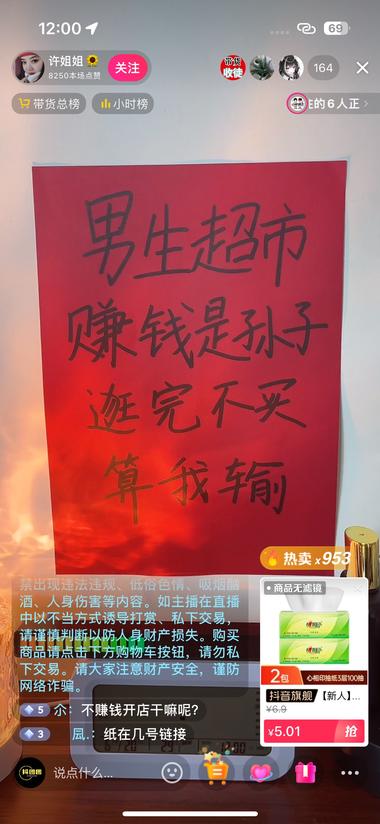 12:00
69
许姐姐🌻
8250本场点赞
关注
带货
收徒
164
带货总榜
小时榜
在的6人正
男生超市
赚钱是孙子
逛完不买
算我输
热卖x953
禁出现违法违规、低俗色情、吸烟酗
酒、人身伤害等内容。如主播在直播
中以不当方式诱导打赏、私下交易，
请谨慎判断以防人身财产损失。购买
商品请点击下方购物车按钮，请勿私
下交易。请大家注意财产安全，谨防
网络诈骗。
5 尒：不赚钱开店干嘛呢？
3 凬.：纸在几号链接
商品无滤镜
心相印
2包
心相印抽纸3层100抽
抖音旗舰
【新人】...
¥6.9
¥5.01
抢
说点什么...